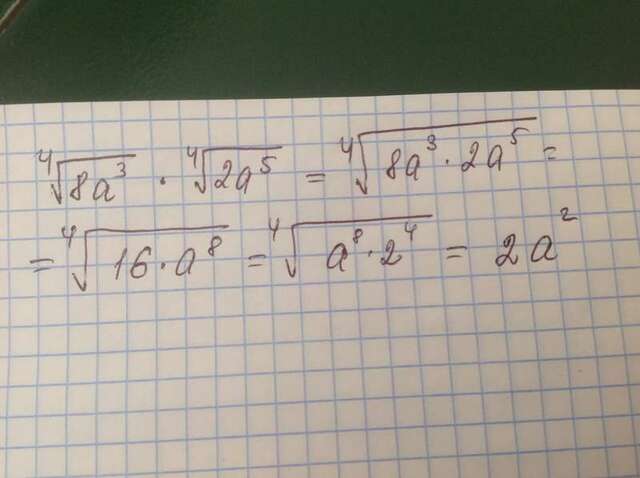 ⁴√8a³ · ⁴√2a⁵ = ⁴√8a³ · 2a⁵ =
= ⁴√16 · a⁸ = ⁴√a⁸ · 2⁴ = 2a²